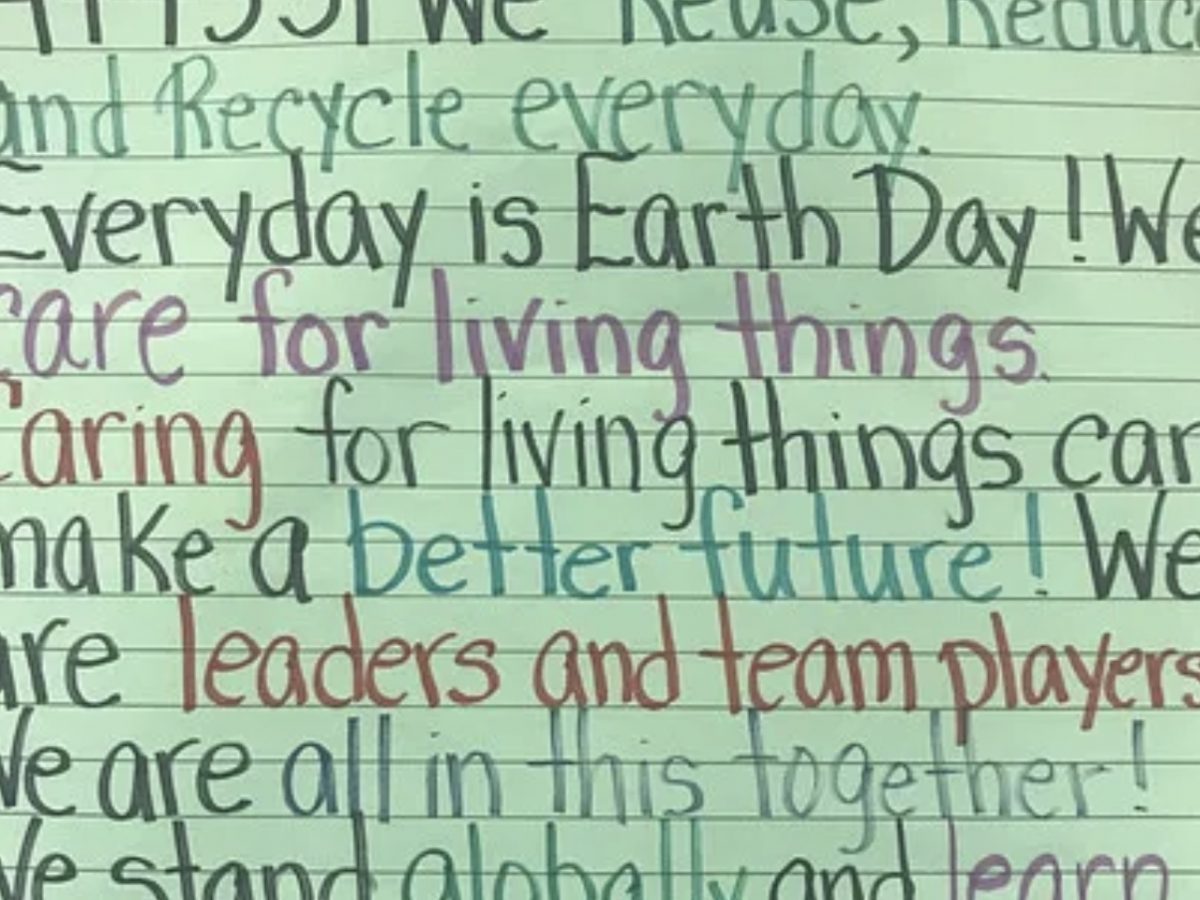 We Reuse, Reduc
and Recycle everyday.
Everyday is Earth Day! We
care for living things.
Caring for living things can
make a better future! We
are leaders and team players
We are all in this together!
We stand globally and learn